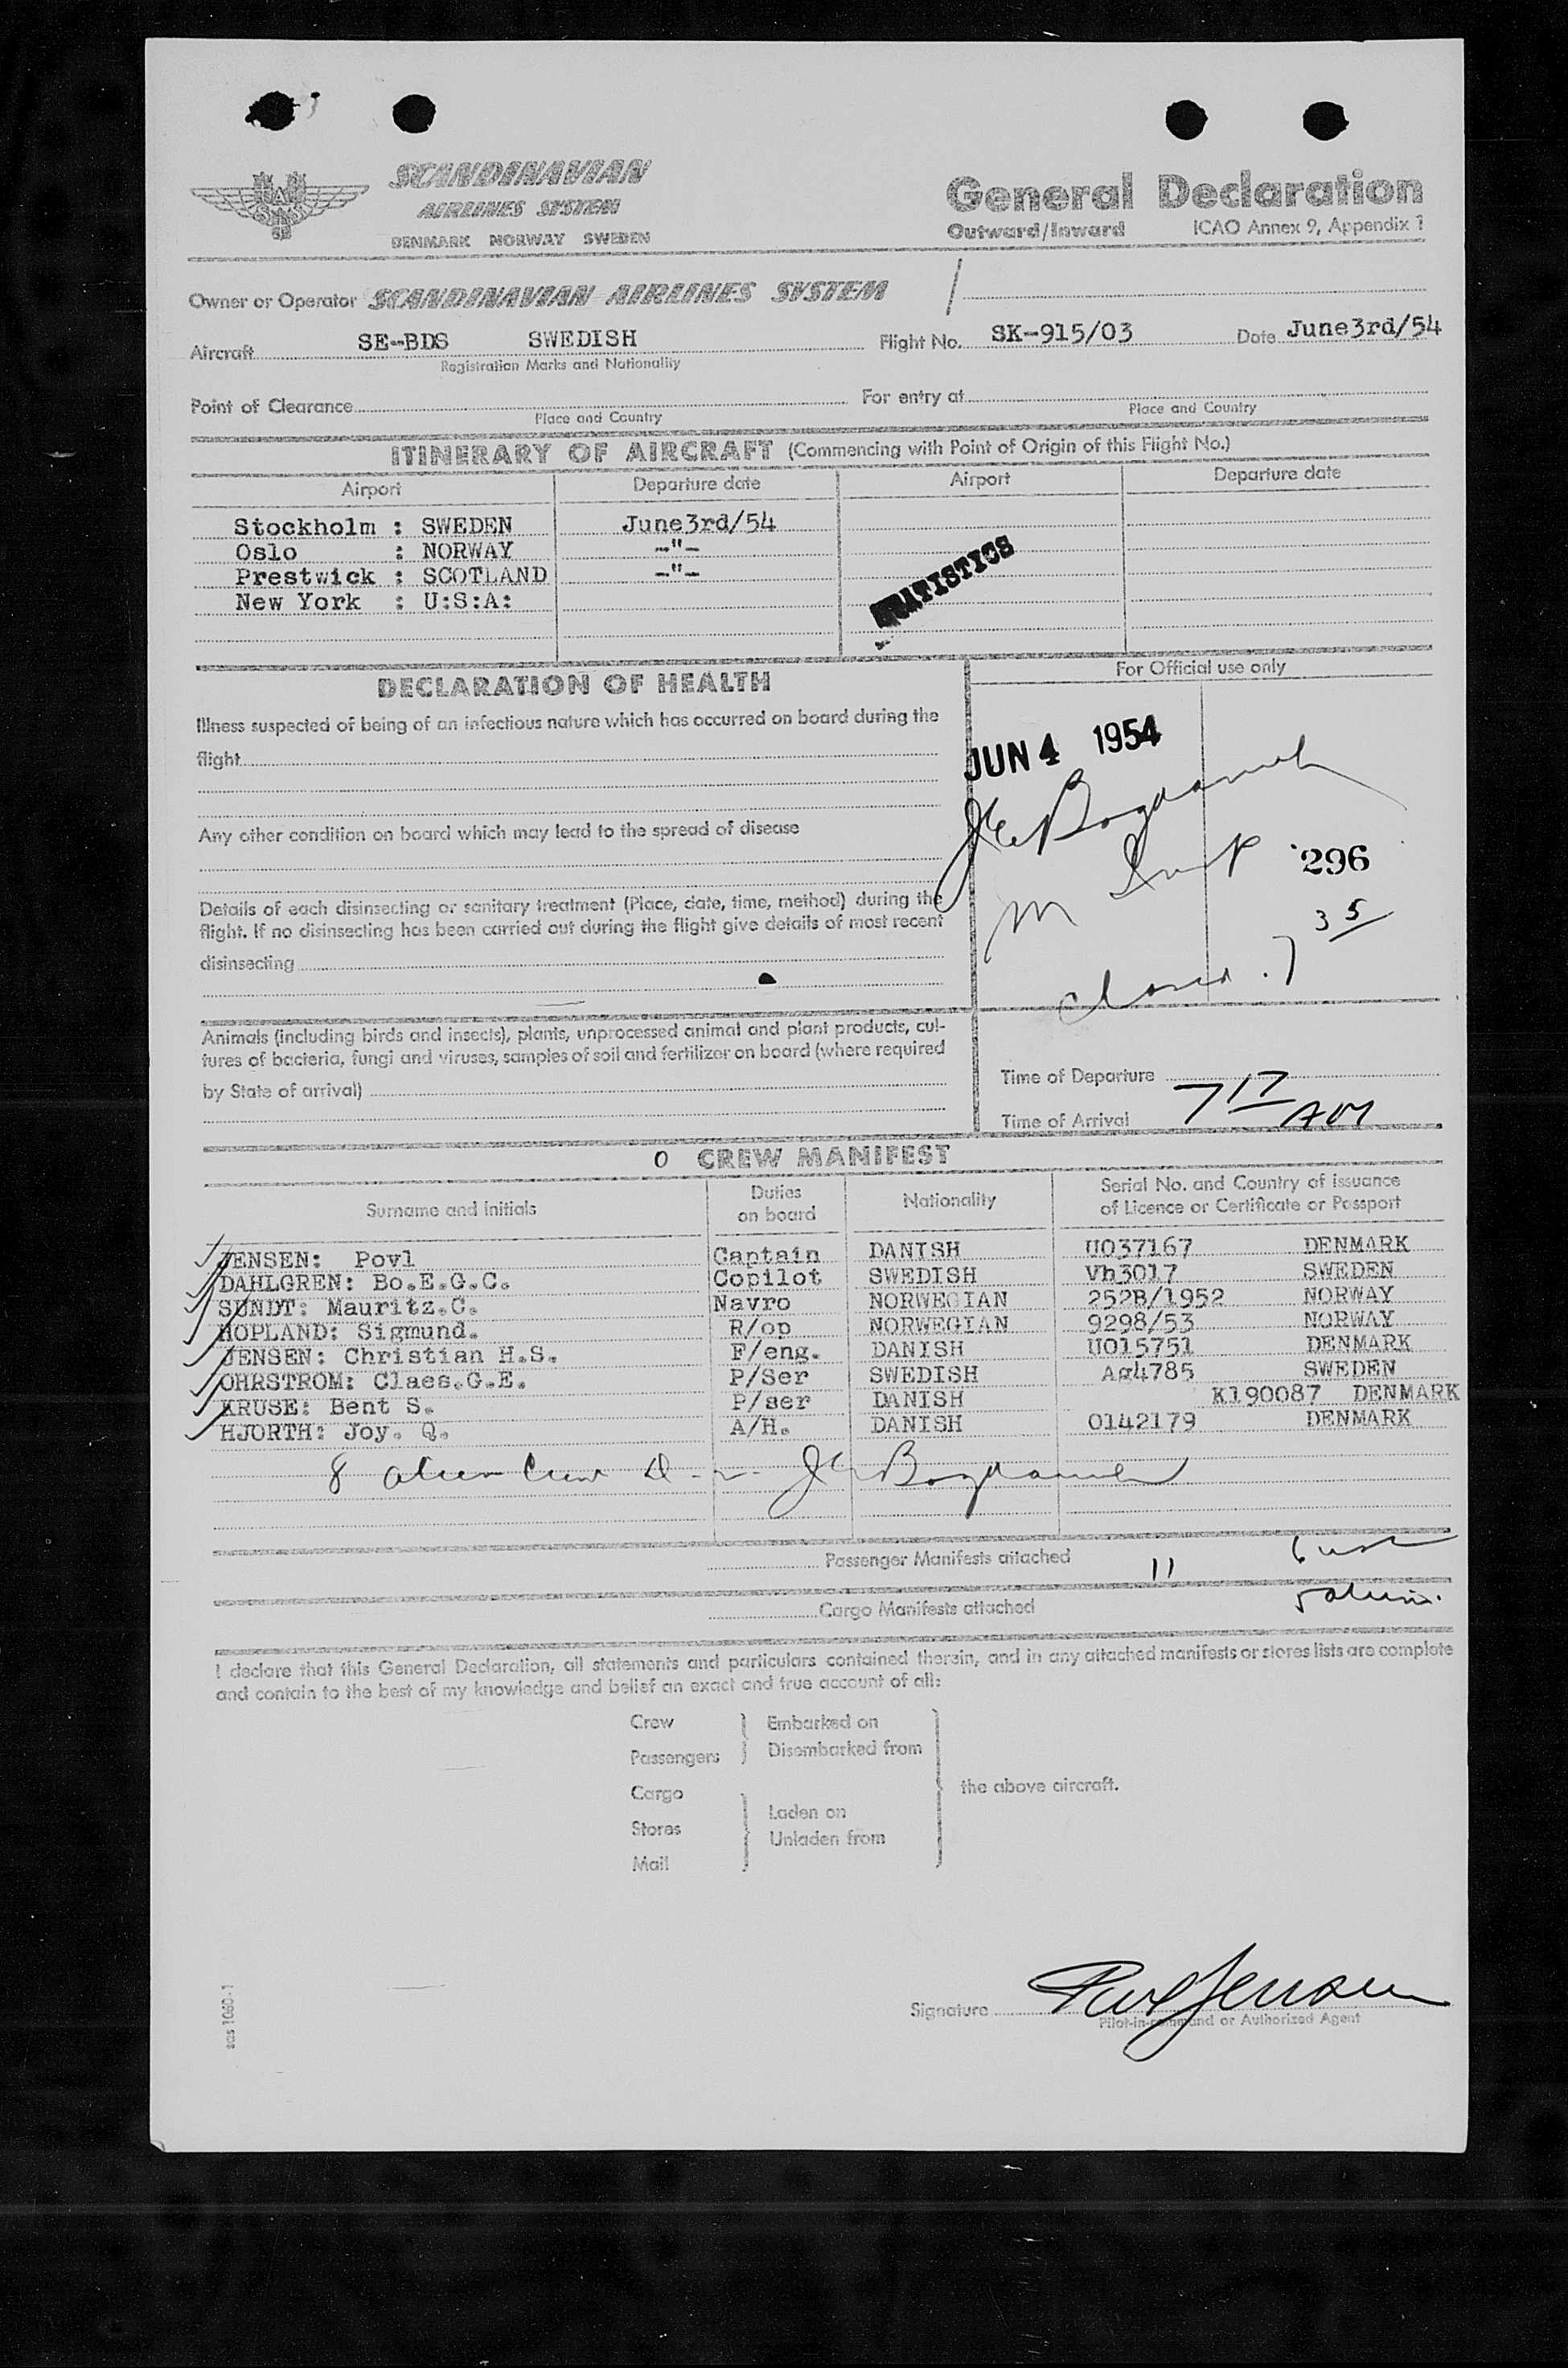 SCANDINAVIAN
AIRLINES SYSTEM
DENMARK NORWAY SWEDEN
General Declaration
Outward/Inward ICAO Annex 9, Appendix 1
Owner or Operator SCANDINAVIAN AIRLINES SYSTEM
Aircraft SE-BDS SWEDISH Flight No. SK-915/03 Date June3rd/54
Registration Marks and Nationality
Point of Clearance For entry at
Place and Country Place and Country
ITINERARY OF AIRCRAFT (Commencing with Point of Origin of this Flight No.)
Airport Departure date Airport Departure date
Stockholm : SWEDEN June3rd/54
Oslo : NORWAY -"-
Prestwick : SCOTLAND -"-
New York : U:S:A:
STATISTICS
DECLARATION OF HEALTH
For Official use only
Illness suspected of being of an infectious nature which has occurred on board during the
flight
JUN 4 1954
Any other condition on board which may lead to the spread of disease
296
Details of each disinsecting or sanitary treatment (Place, date, time, method) during the
flight. If no disinsecting has been carried out during the flight give details of most recent
disinsecting
closed. 7 35
Animals (including birds and insects), plants, unprocessed animal and plant products, cul-
tures of bacteria, fungi and viruses, samples of soil and fertilizer on board (where required
by State of arrival)
Time of Departure
Time of Arrival 7 17 AM
O CREW MANIFEST
Surname and initials Duties on board Nationality Serial No. and Country of issuance
of Licence or Certificate or Passport
JENSEN: Povl Captain DANISH U037167 DENMARK
DAHLGREN: Bo.E.G.C. Copilot SWEDISH Vh3017 SWEDEN
SUNDT: Mauritz.C. Navro NORWEGIAN 252B/1952 NORWAY
HOPLAND: Sigmund. R/op NORWEGIAN 9298/53 NORWAY
JENSEN: Christian H.S. F/eng. DANISH U015751 DENMARK
OHRSTROM: Claes.G.E. P/Ser SWEDISH Ag4785 SWEDEN
KRUSE: Bent S. P/ser DANISH K190087 DENMARK
HJORTH: Joy. Q. A/H. DANISH 0142179 DENMARK
8 alien crew
Passenger Manifests attached 11
Cargo Manifests attached 5 aliens.
I declare that this General Declaration, all statements and particulars contained therein, and in any attached manifests or stores lists are complete
and contain to the best of my knowledge and belief an exact and true account of all:
Crew Embarked on
Passengers Disembarked from
Cargo the above aircraft.
Laden on
Stores
Unladen from
Mail
Signature Povl Jensen
Pilot-in-command or Authorized Agent
sas 1060-1